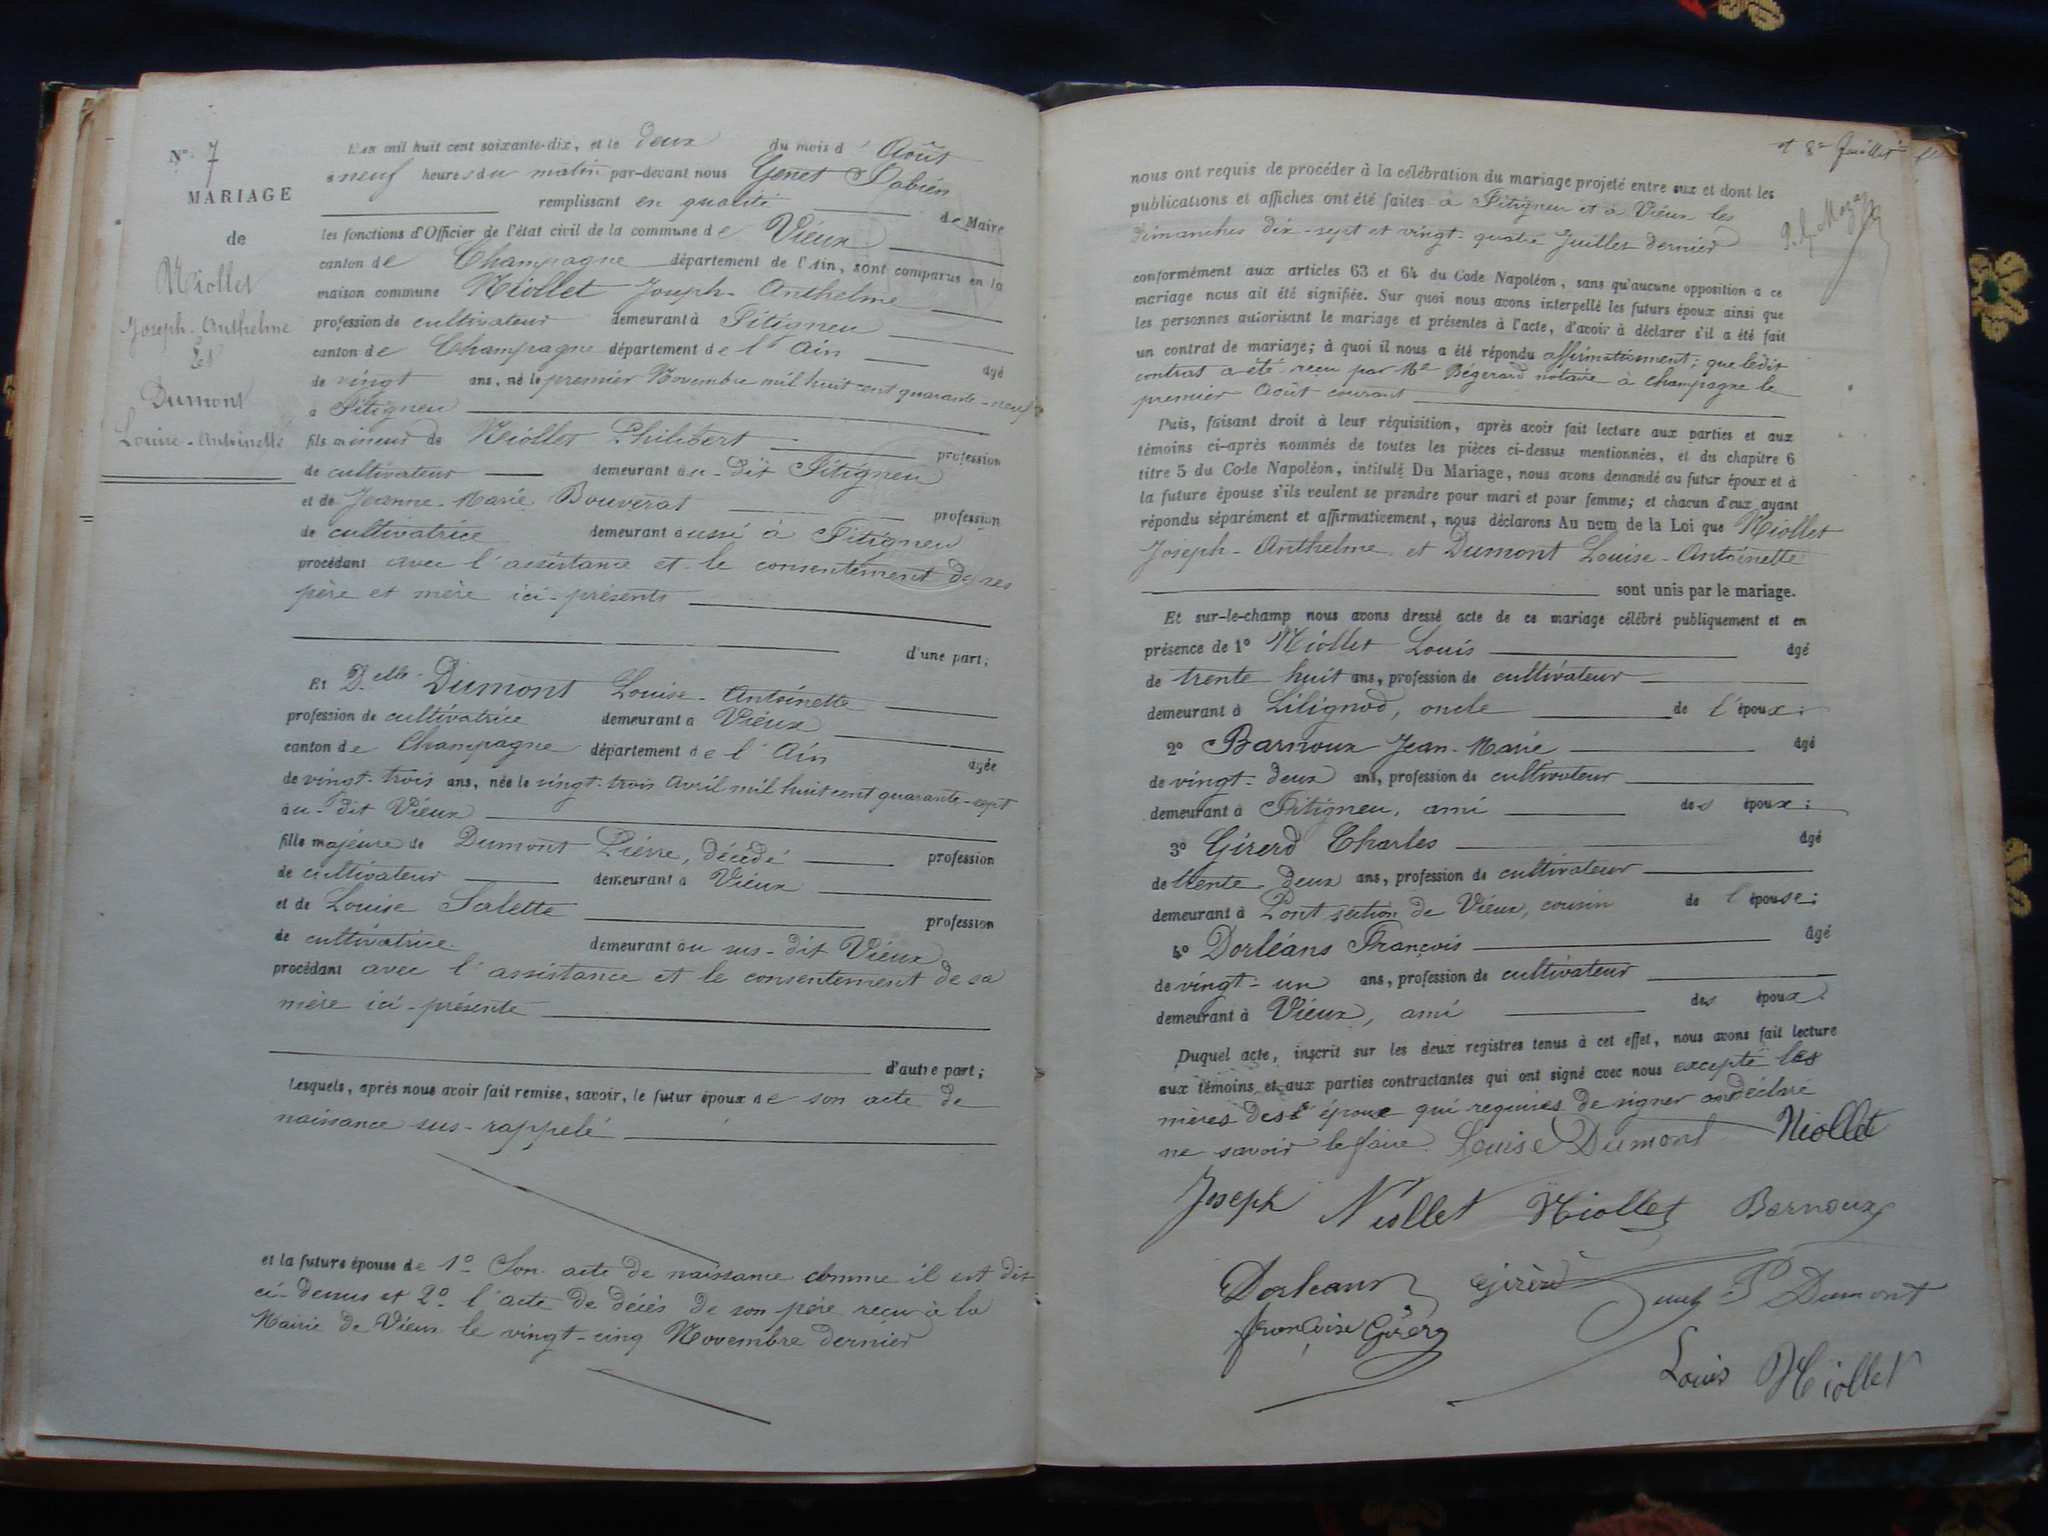 N° 7
MARIAGE
de
Niollet
Joseph-Anthelme
Et
Dumont
Louise-Antoinette
L'an mil huit cent soixante-dix, et le deux du mois d'Août
à neuf heures du matin par-devant nous Genet Fabien
remplissant en qualité de Maire
les fonctions d'Officier de l'état civil de la commune de Vieux
canton de Champagne département de l'Ain, sont comparus en la
maison commune Niollet Joseph-Anthelme
profession de cultivateur demeurant à Fitignieu
canton de Champagne département de l'Ain âgé
de vingt ans, né le premier Novembre mil huit cent quarante-neuf
à Fitigneu
fils mineur de Niollet Philibert profession
de cultivateur demeurant au-dit Fitigneu
et de Jeanne-Marie Bouverat profession
de cultivatrice demeurant aussi à Fitigneu
procédant avec l'assistance et le consentement de ses
père et mère ici-présents
d'une part;
Et Delle Dumont Louise-Antoinette
profession de cultivatrice demeurant à Vieux
canton de Champagne département de l'Ain âgée
de vingt-trois ans, née le vingt-trois Avril mil huit cent quarante-sept
au-dit Vieux
fille majeure de Dumont Pierre, décédé profession
de cultivateur demeurant à Vieux
et de Louise Salette profession
de cultivatrice demeurant au sus-dit Vieux
procédant avec l'assistance et le consentement de sa
mère ici-présente
d'autre part;
Lesquels, après nous avoir fait remise, savoir, le futur époux de son acte de
naissance sus-rappelé
et la future épouse de 1° Son acte de naissance comme il est dit
ci-dessus et 2° l'acte de décès de son père reçu à la
Mairie de Vieux le vingt-cinq Novembre dernier
et 8e Juillet
nous ont requis de procéder à la célébration du mariage projeté entre eux et dont les
publications et affiches ont été faites à Fitigneu et à Vieux les
dimanches dix-sept et vingt-quatre Juillet dernier
conformément aux articles 63 et 64 du Code Napoléon, sans qu'aucune opposition à ce
mariage nous ait été signifiée. Sur quoi nous avons interpellé les futurs époux ainsi que
les personnes autorisant le mariage et présentes à l'acte, d'avoir à déclarer s'il a été fait
un contrat de mariage; à quoi il nous a été répondu affirmativement; que ledit
contrat a été reçu par Me Bégerard notaire à Champagne le
premier Août courant
Puis, faisant droit à leur réquisition, après avoir fait lecture aux parties et aux
témoins ci-après nommés de toutes les pièces ci-dessus mentionnées, et du chapitre 6
titre 5 du Code Napoléon, intitulé Du Mariage, nous avons demandé au futur époux et à
la future épouse s'ils veulent se prendre pour mari et pour femme; et chacun d'eux ayant
répondu séparément et affirmativement, nous déclarons Au nom de la Loi que Niollet
Joseph-Anthelme et Dumont Louise-Antoinette
sont unis par le mariage.
Et sur-le-champ nous avons dressé acte de ce mariage célébré publiquement et en
présence de 1° Niollet Louis âgé
de trente huit ans, profession de cultivateur
demeurant à Lilignod, oncle de l'époux;
2° Barnoux Jean-Marie âgé
de vingt-deux ans, profession de cultivateur
demeurant à Fitigneu, ami des époux;
3° Girerd Charles âgé
de trente-deux ans, profession de cultivateur
demeurant à Pont section de Vieux, cousin de l'épouse;
4° Dorléans François âgé
de vingt-un ans, profession de cultivateur
demeurant à Vieux, ami des époux.
Duquel acte, inscrit sur les deux registres tenus à cet effet, nous avons fait lecture
aux témoins et aux parties contractantes qui ont signé avec nous excepté les
mères des époux qui requises de signer ont déclaré
ne savoir le faire. Louise Dumont Niollet
Joseph Niollet Niollet Barnoux
Dorleans Girerd P Dumont
françoise Girerd
Louis Niollet